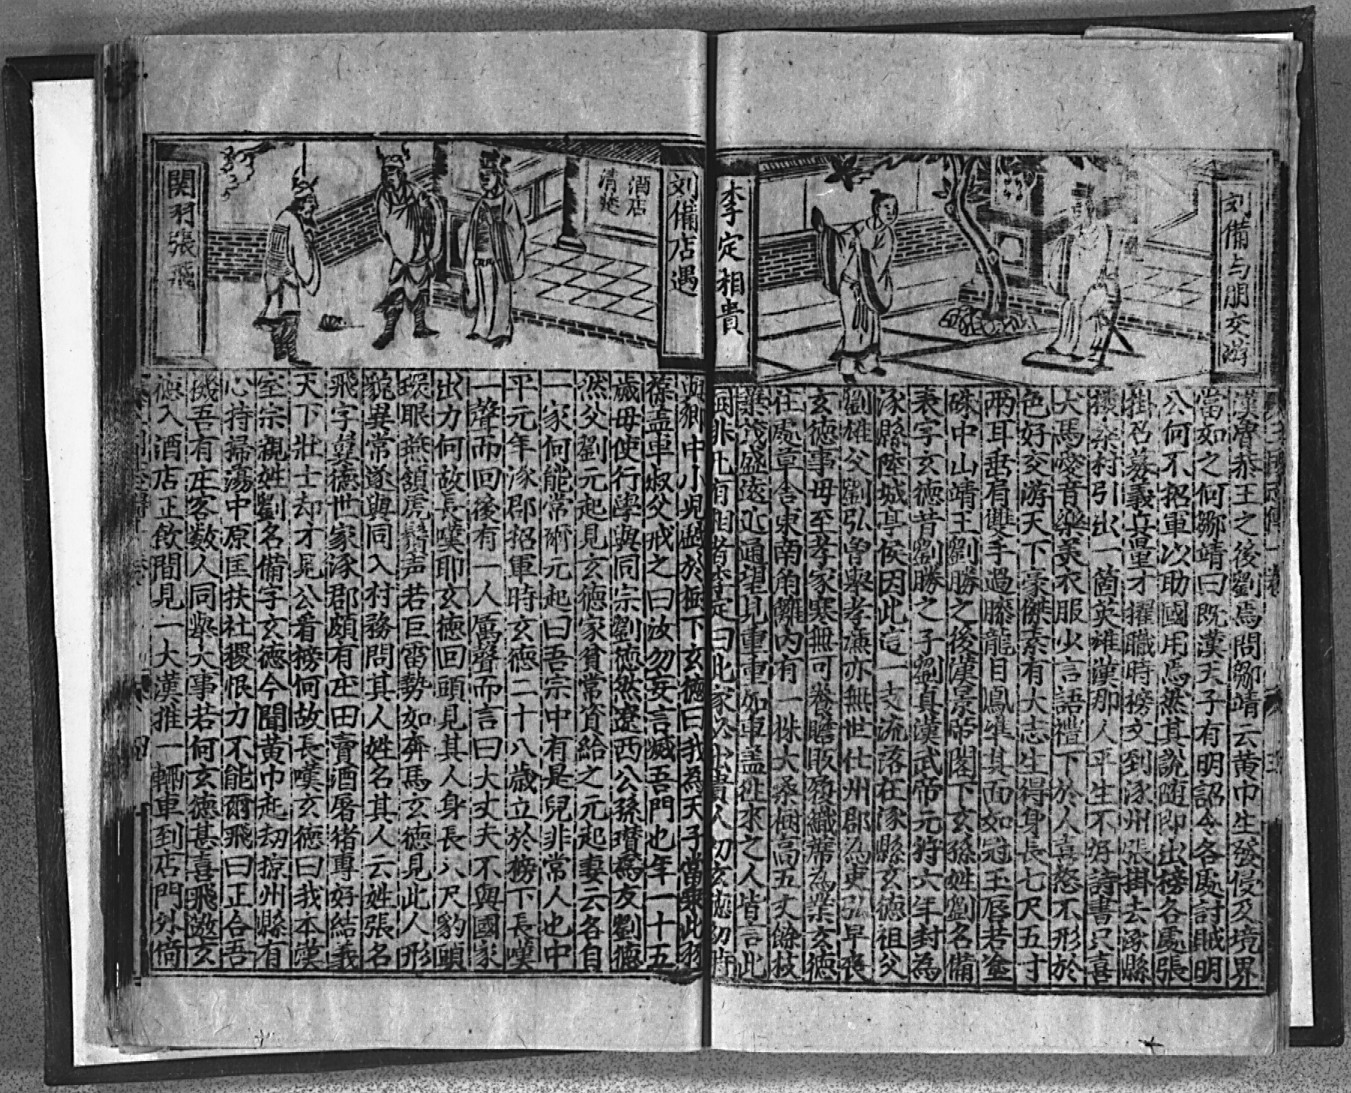 刘備与朋交游
李定相貴
漢魯恭王之後劉焉問鄒靖云黄巾生發侵及境界
當如之何鄒靖曰既漢天子有明詔令各處討賊明
公何不招軍以助國用焉然其說随即出榜各處張
掛召募義兵量才擢職時榜文到涿州張掛去涿縣
樓桑村引出一箇英雄漢那人平生不好詩書只喜
犬馬愛音樂美衣服少言語禮下於人喜怒不形於
色好交游天下豪傑素有大志生得身長七尺五寸
兩耳垂肩雙手過膝龍目鳳準其面如冠玉唇若塗
硃中山靖王劉勝之後漢景帝閣下玄孫姓劉名備
表字玄德昔劉勝之子劉真漢武帝元狩六年封為
涿縣陸城亭侯因此這一支流落在涿縣玄德祖父
劉雄父劉弘曾舉孝廉亦無世仕州郡為吏弘早喪
玄德事母至孝家寒無可養贍販履織蓆為業玄德
住處草舍東南角籬内有一株大桑樹高五丈餘枝
葉茂盛遠近通望見重重如車盖徃來之人皆言此
樹非凡有相者李定曰此家必出貴人初玄德幼時
刘備店遇
関羽張飛
酒店
清
與鄉中小兒戲於樹下玄德曰我為天子當乘此羽
葆盖車叔父戒之曰汝勿妄言滅吾門也年一十五
歲母使行學與同宗劉德然遼西公孫瓚為友劉德
然父劉元起見玄德家貧常資給之元起妻云各自
一家何能常爾元起曰吾宗中有是兒非常人也中
平元年涿郡招軍時玄德二十八歲立於榜下長嘆
一聲而回後有一人厲聲而言曰大丈夫不與國家
出力何故長嘆耶玄德回頭見其人身長八尺豹頭
環眼燕頷虎鬚声若巨雷勢如奔馬玄德見此人形
貌異常遂與同入村務問其人姓名其人云姓張名
飛字翼德世家涿郡頗有庄田賣酒屠猪專好結義
天下壯士却才見公看榜何故長嘆玄德曰我本漢
室宗親姓劉名備字玄德今聞黄巾起刼掠州縣有
心待掃蕩中原匡扶社稷恨力不能爾飛曰正合吾
機吾有庄客数人同舉大事若何玄德甚喜飛邀玄
德入酒店正飲間見一大漢推一輛車到店門外倚